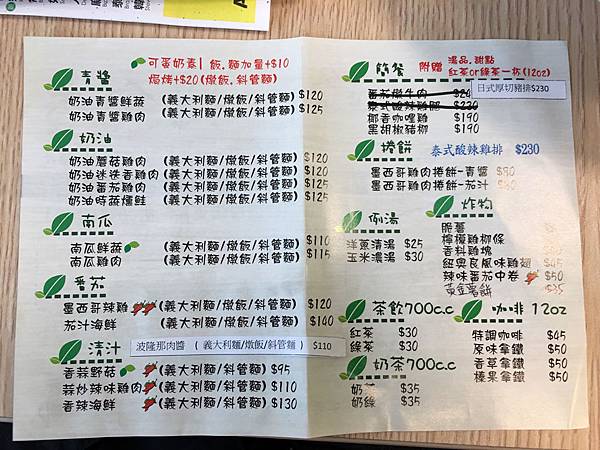 ●可蛋奶素| 飯.麵加量+$10
焗烤+$20(燉飯.斜管麵)
青醬
奶油青醬鮮蔬 (義大利麵/燉飯/斜管麵) $120
奶油青醬雞肉 (義大利麵/燉飯/斜管麵) $125
奶油
奶油蘑菇雞肉 (義大利麵/燉飯/斜管麵) $120
奶油迷迭香雞肉 (義大利麵/燉飯/斜管麵) $120
奶油蕃茄雞肉 (義大利麵/燉飯/斜管麵) $125
奶油時蔬燻鮭 (義大利麵/燉飯/斜管麵) $125
南瓜
南瓜鮮蔬 (義大利麵/燉飯/斜管麵) $110
南瓜雞肉 (義大利麵/燉飯/斜管麵) $115
蕃茄
墨西哥辣雞 (義大利麵/燉飯/斜管麵) $120
茄汁海鮮 (義大利麵/燉飯/斜管麵) $140
清汁
波隆那肉醬 ( 義大利麵/燉飯/斜管麵 ) $110
香蒜野菇 (義大利麵/燉飯/斜管麵) $95
蒜炒辣味雞肉 (義大利麵/燉飯/斜管麵) $110
香辣海鮮 (義大利麵/燉飯/斜管麵) $130
簡餐
附贈 湯品.甜點
紅茶or綠茶一杯(12oz)
日式厚切豬排$230
蕃茄燉牛肉
泰式酸辣雞腿 $230
椰香咖哩雞 $190
黑胡椒豬柳 $190
捲餅
泰式酸辣雞排 $230
墨西哥雞肉捲餅-青醬 $80
墨西哥雞肉捲餅-茄汁
例湯
洋蔥清湯 $25
玉米濃湯 $30
炸物
脆薯
檸檬雞柳條
香料雞塊
紐奧良風味雞翅 $45
辣味蕃茄中卷 $50
黃金薯餅 $35
茶飲700c.c
紅茶 $30
綠茶 $30
奶茶700c.c
奶茶 $35
奶綠 $35
咖啡 12oz
特調咖啡 $45
原味拿鐵 $50
香草拿鐵 $50
榛果拿鐵 $50